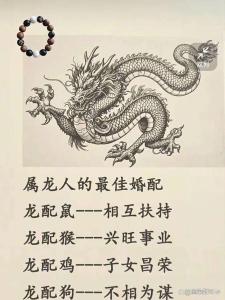 属龙人的最佳婚配
龙配鼠---相互扶持
龙配猴---兴旺事业
龙配鸡---子女昌荣
龙配狗---不相为谋